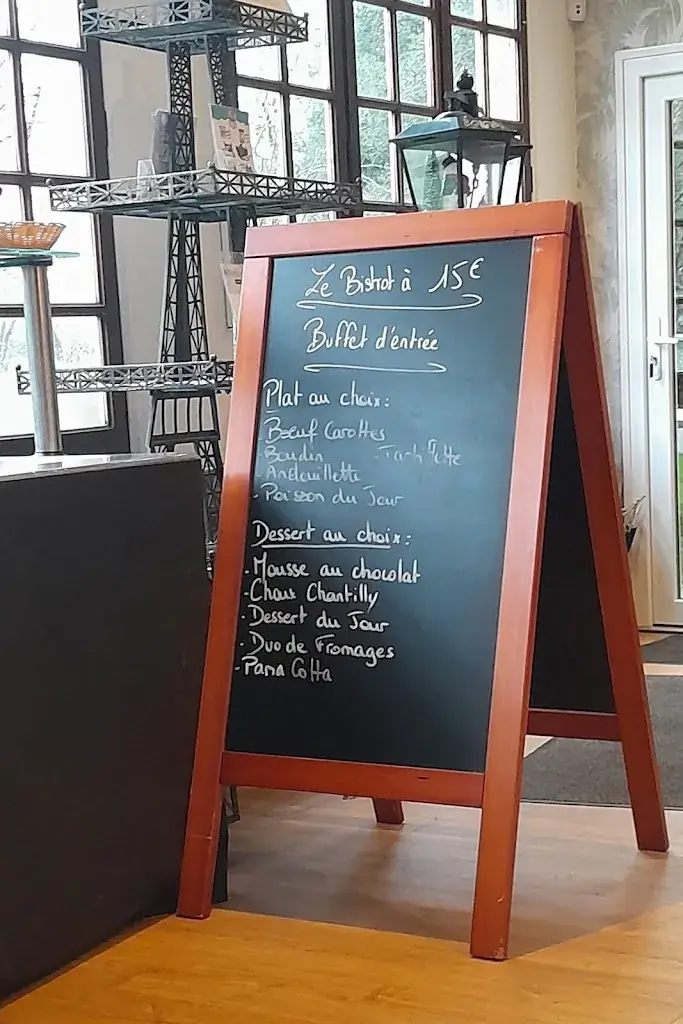 Le Bistrot à 15€
Buffet d'entrée
Plat au choix:
Bœuf Carottes
- Boudin - Tartiflette
- Andouillette
- Poisson du Jour
Dessert au choix:
- Mousse au chocolat
- Choux Chantilly
- Dessert du Jour
- Duo de Fromages
- Pana Cotta